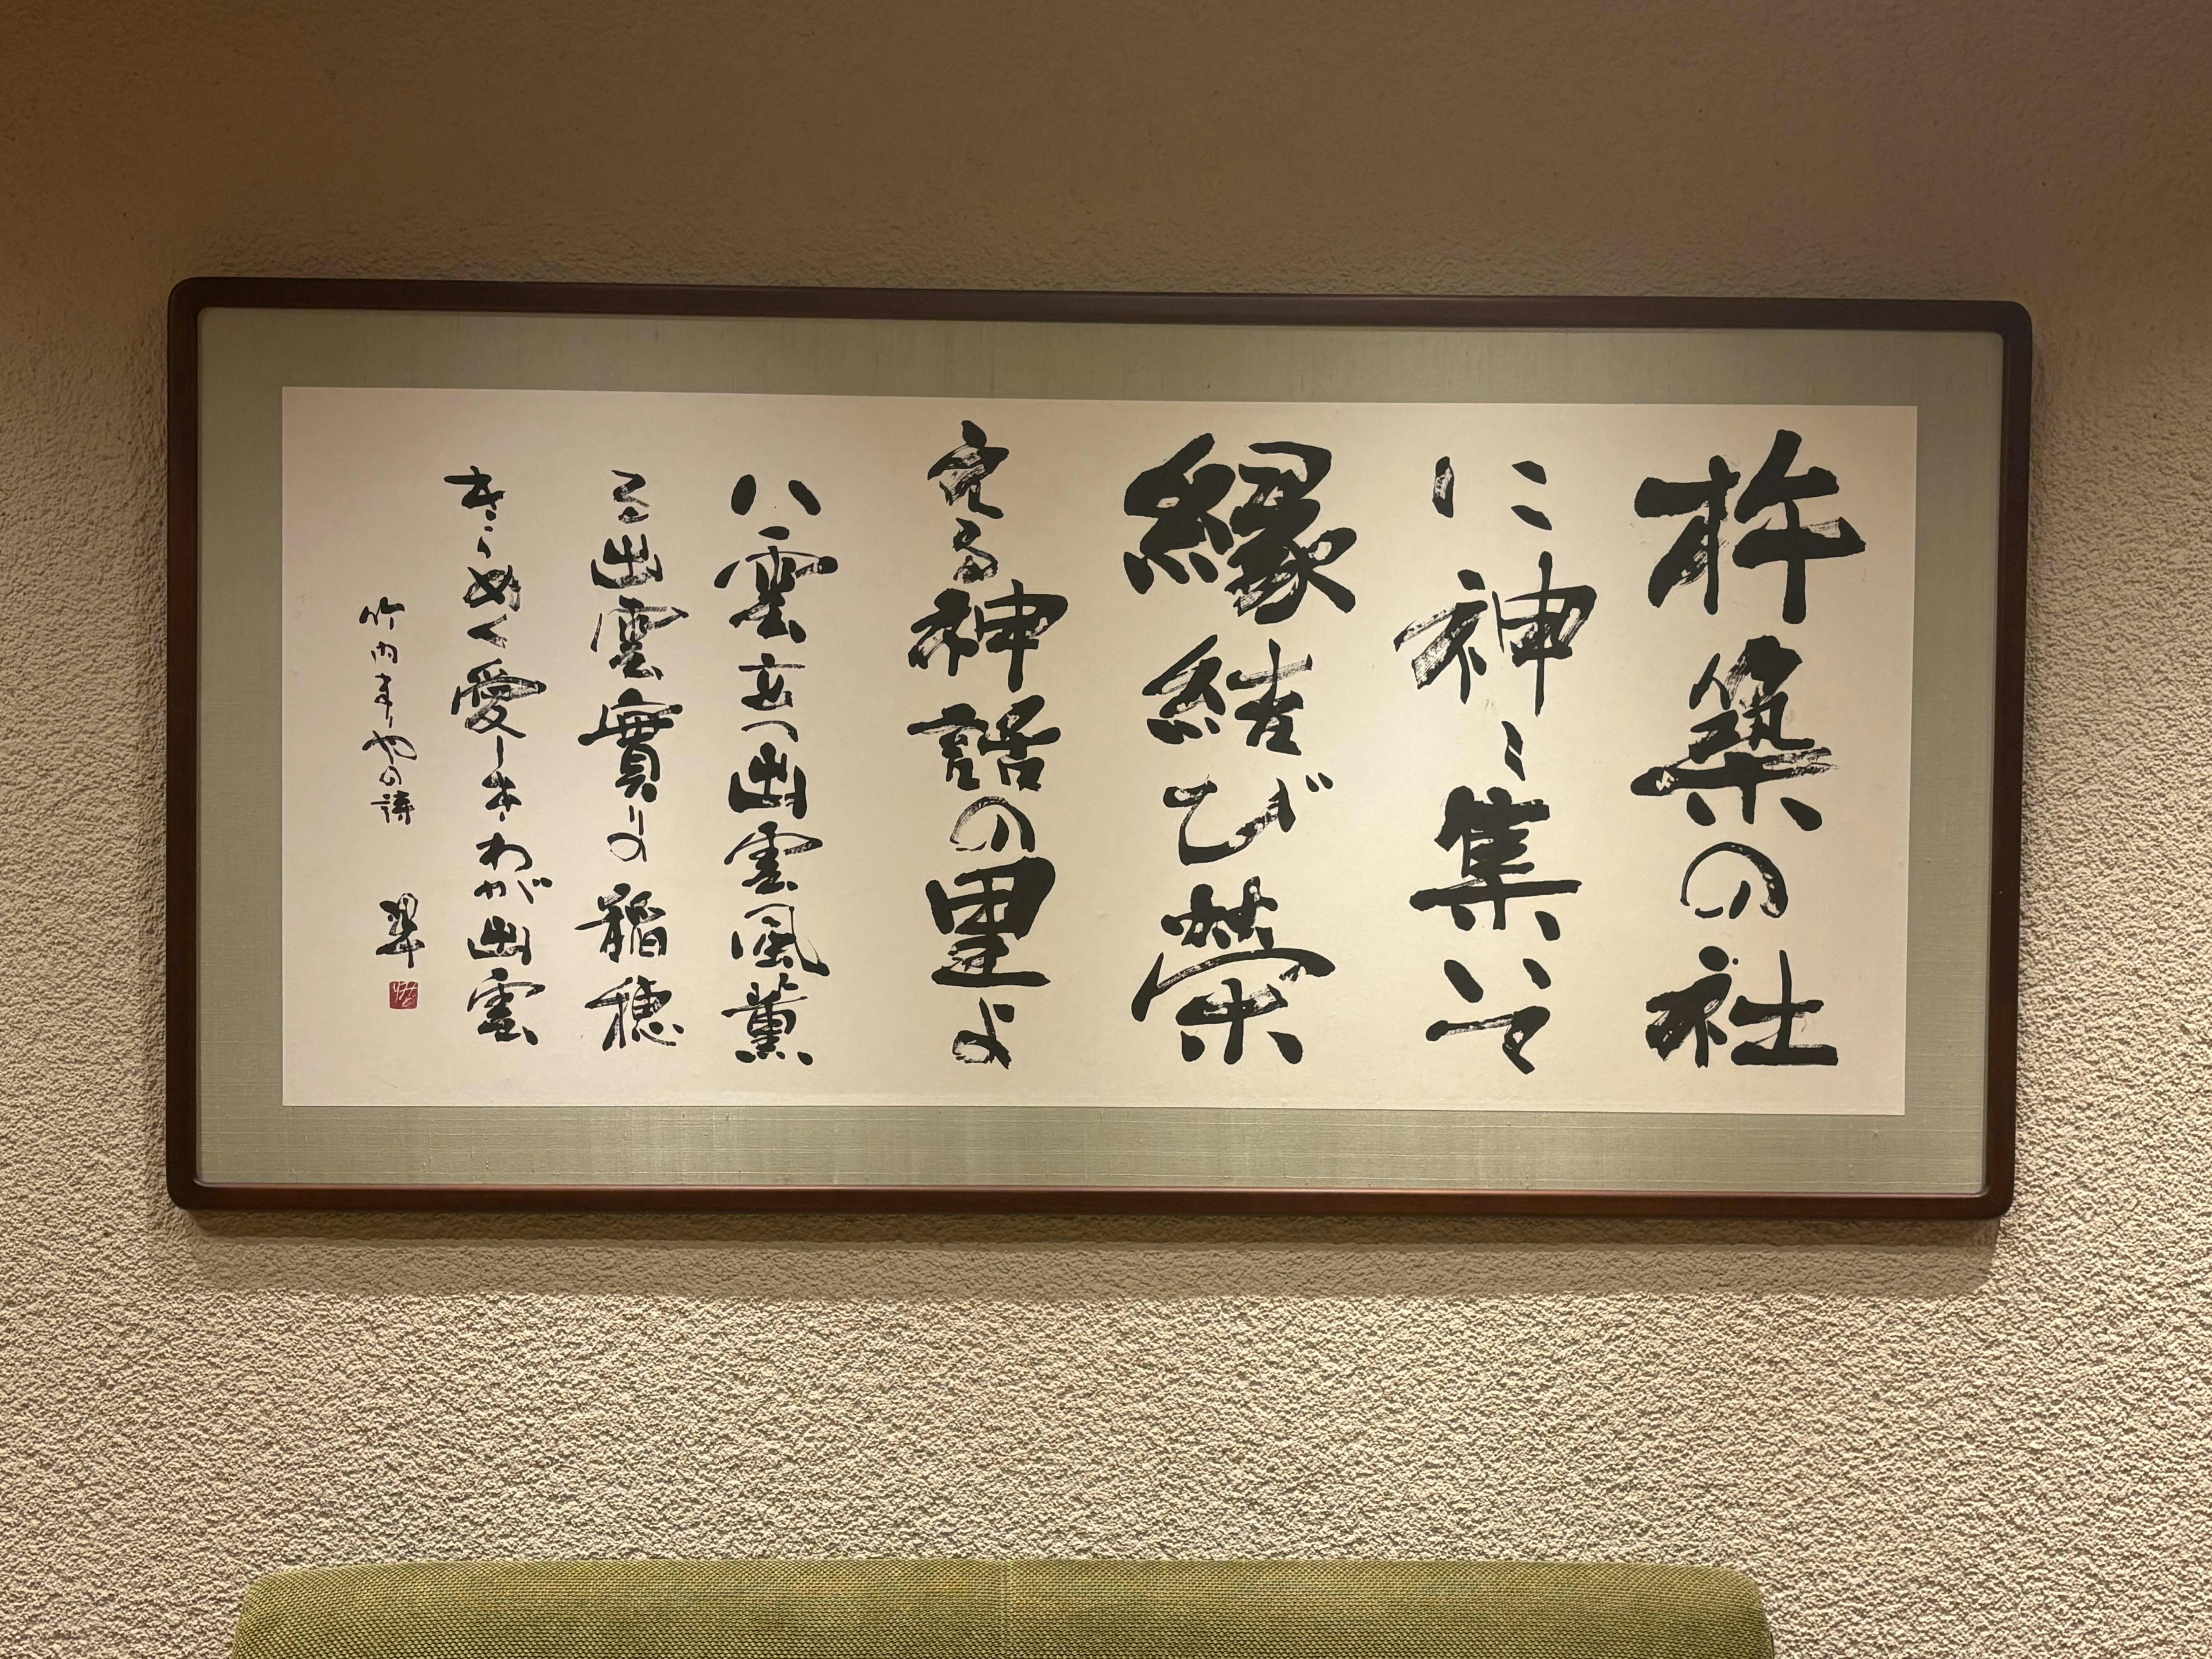 杵築の社
に神〻集いて
縁結び栄
える神話の里よ
八雲立つ出雲風薫
る出雲實りの稲穂
きらめく愛しきわが出雲
竹内まりやの詩 翠